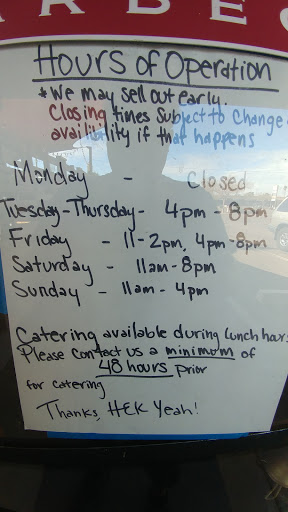 RBE
Hours of Operation
* We may sell out early.
Closing times Subject to Change
availibility if that happens
Monday - Closed
Tuesday-Thursday- 4pm - 8pm
Friday - 11-2pm, 4pm-8pm
Saturday - 11am-8pm
Sunday - 11am - 4pm
Catering available during lunch hours
Please contact us a minimum of
48 hours prior
for catering
Thanks, HEK Yeah!